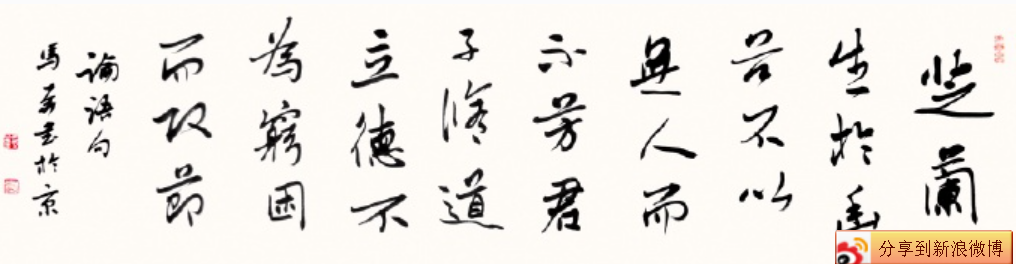 芝蘭
生於幽
谷不以
無人而
不芳君
子脩道
立德不
為窮困
而改節
論語句
馬書於京
分享到新浪微博